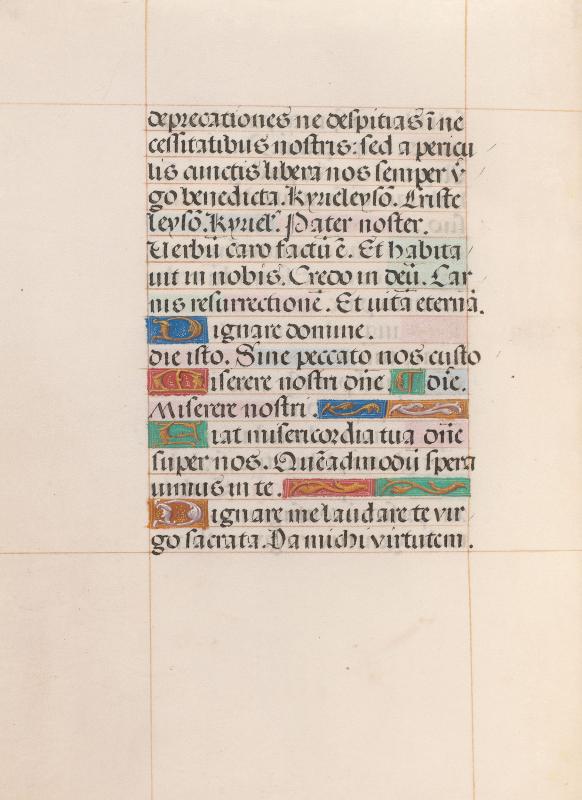 deprecationes ne despitias ī ne
cessitatibus nostris: sed a pericu
lis cunctis libera nos semper v̄
go benedicta. Kyrieleysō. Criste
leysō. Kyriel'. Pater noster.
Uerbū caro factū ē. Et habita
uit in nobis. Credo in deū. Car
nis resurrectionē. Et uitā eternā.
Dignare domine.
die isto. Sine peccato nos custo
Miserere nostri dn̄e. T dn̄e.
Miserere nostri.
Fiat misericordia tua dn̄e
super nos. Quēadmodū spera
uimus in te.
Dignare me laudare te vir
go sacrata. Da michi virtutem.